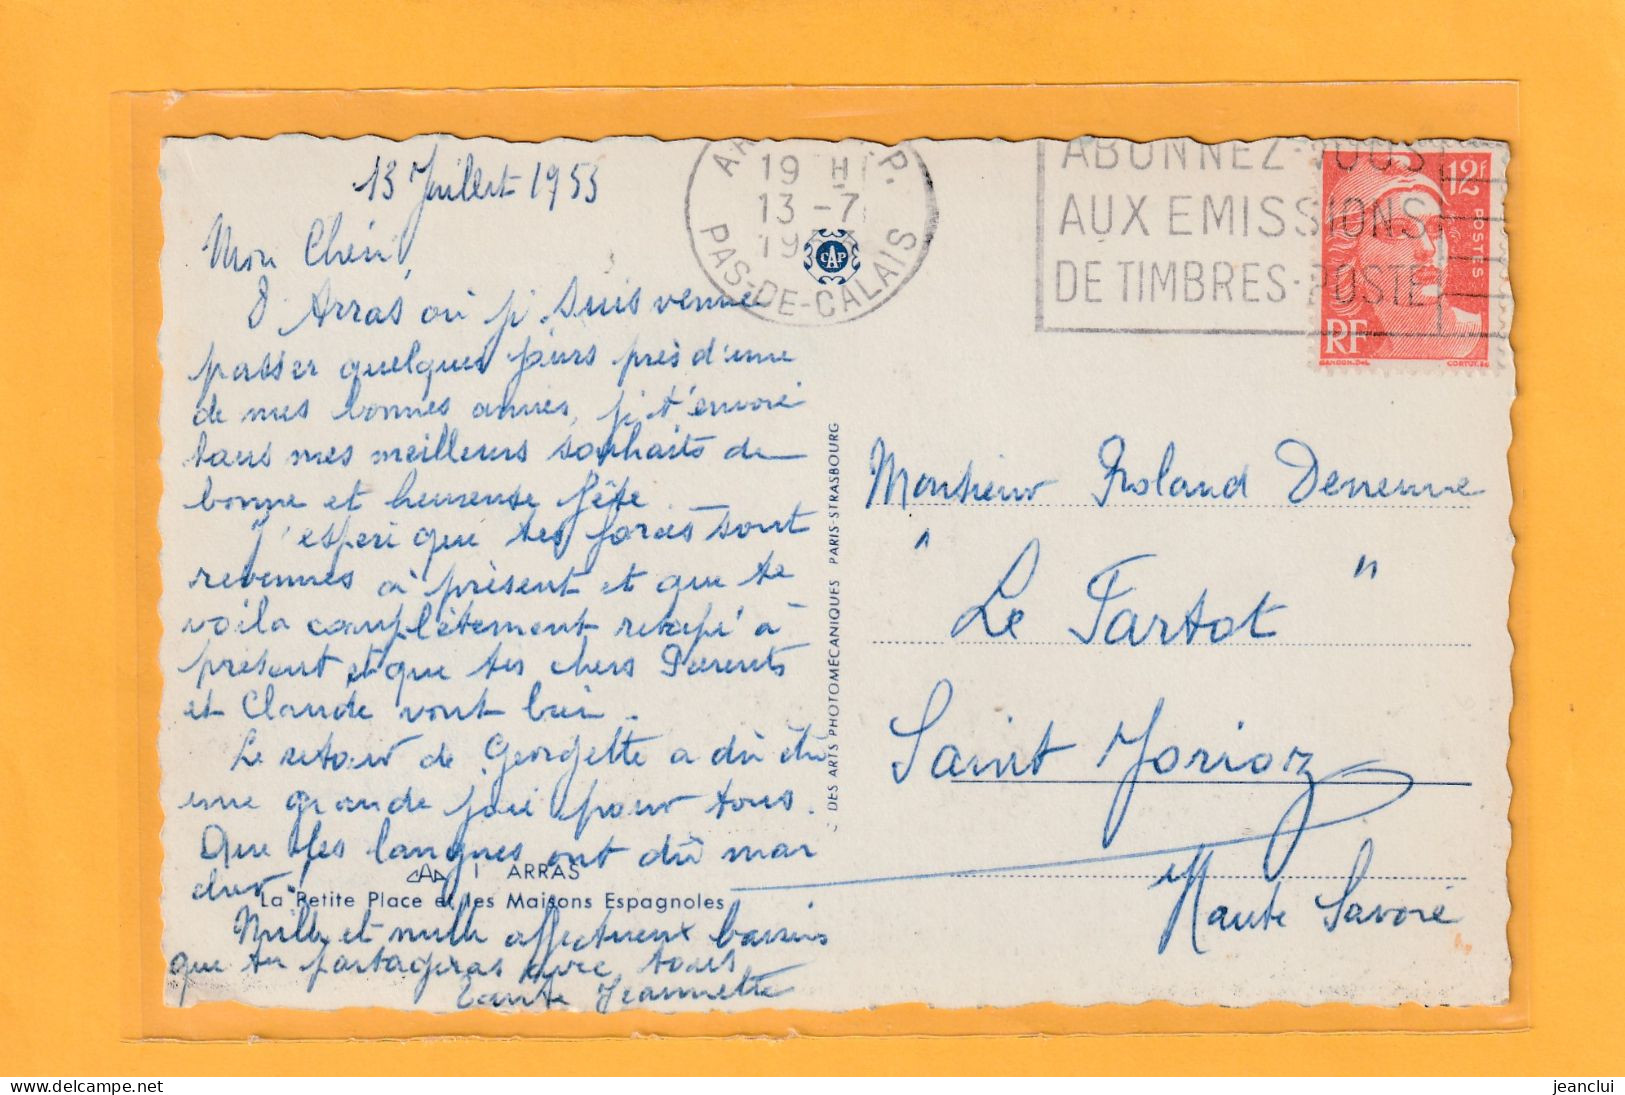 13 Juillet 1953
Mon Chéri,
D'Arras où je suis venue
passer quelques jours près d'une
de mes bonnes amies, je t'envoie
tous mes meilleurs souhaits de
bonne et heureuse fête.
J'espère que tes forces sont
revenues à présent et que te
voila complètement retapé à
présent et que tes chers Parents
et Claude vont bien.
Le retour de Georgette a dû être
une grande joie pour tous.
Que les langues ont dû mar
cher
Mille et mille affectueux baisers
que tu partageras avec tous
Tante Jeannette
1 ARRAS
La Petite Place et les Maisons Espagnoles
DES ARTS PHOTOMECANIQUES PARIS-STRASBOURG
CAP
19 H
13-7
19
PAS-DE-CALAIS
ABONNEZ-VOUS
AUX EMISSIONS
DE TIMBRES-POSTE
12F
POSTES
RF
GANDON.DEL
CORTOT.SC
Monsieur Roland Denenne
"Le Tartot"
Saint Jorioz
Haute Savoie
jeanclui
www.delcampe.net